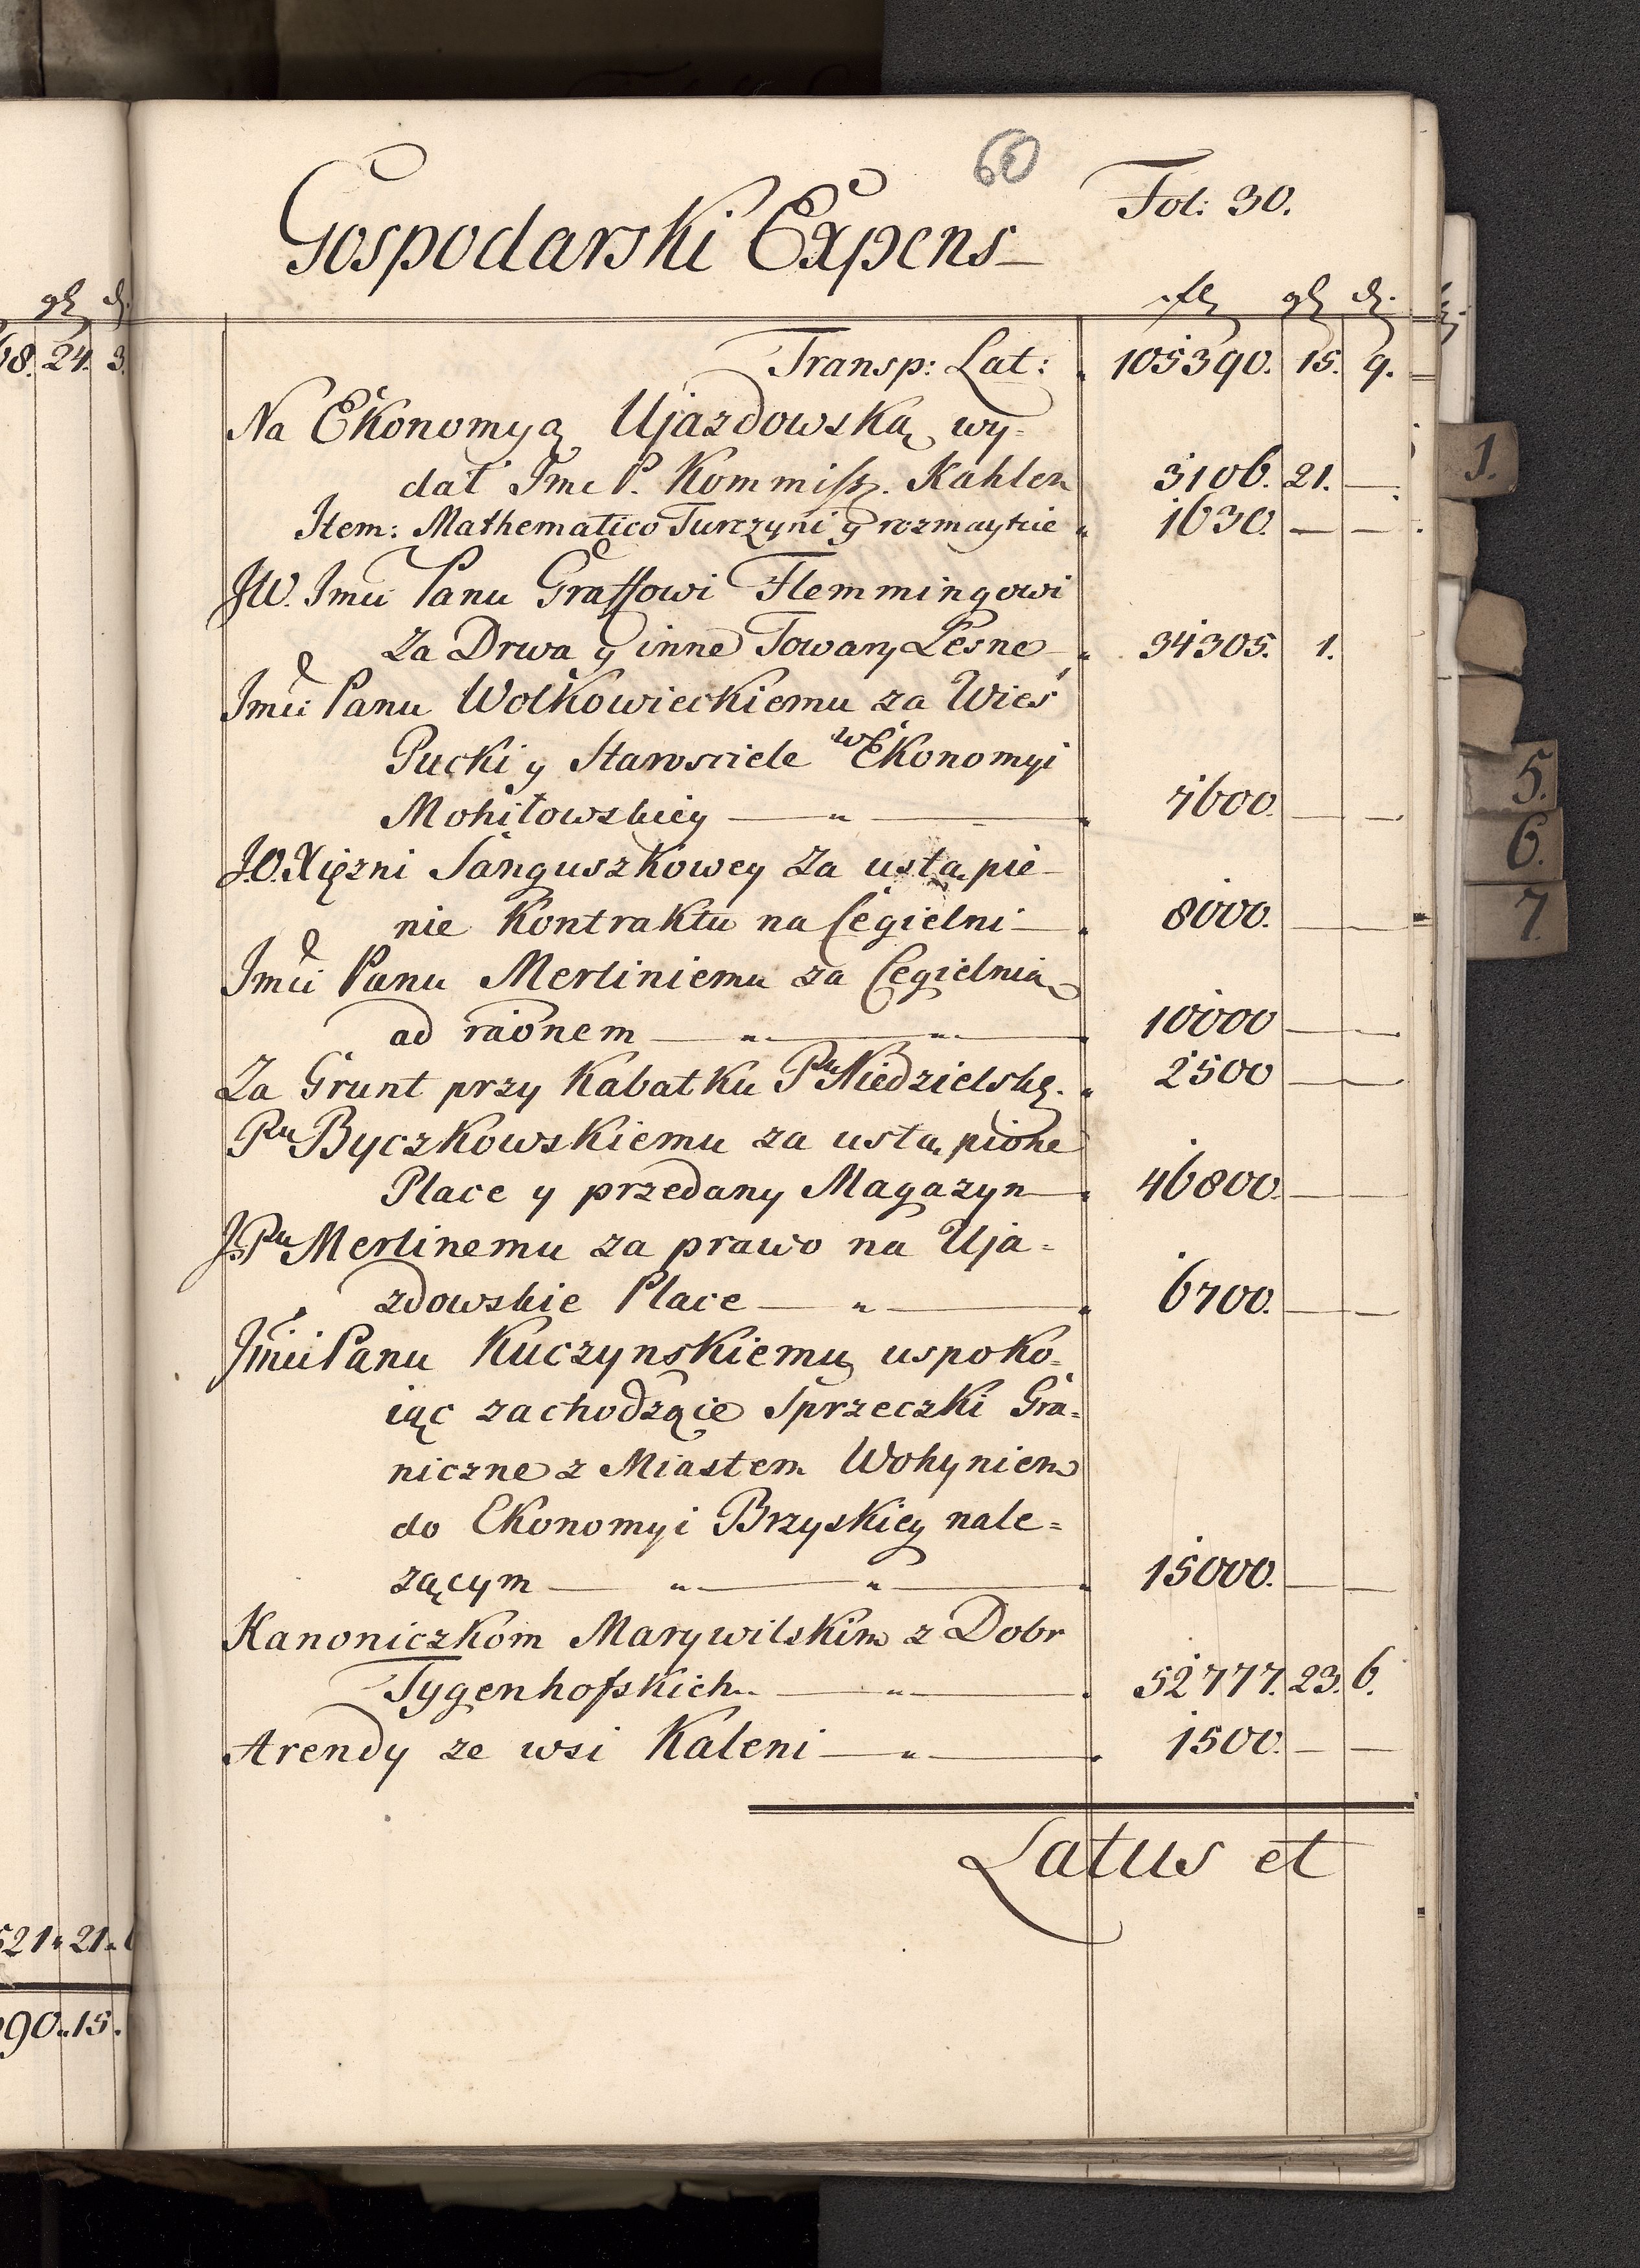 60
Fol: 30.
Gospodarski Expens
fl gl d.
gl d.
68. 24. 3.
Transp: Lat: 105390. 15. 9.
Na Ekonomyą Ujazdowską wy=
dał Jmc P. Kommiss. Kahlen 3106. 21. —
Item: Mathematico Turczyni y rozmaytcie 1630. — —
JW. Jmci Panu Graffowi Flemmingowi
Za Drwa y inne Towary Leśne 34305. 1.
Jmci Panu Wołkowieckiemu za Wieś
Pucki y Starosciele w Ekonomyi
Mohiłowskiey — " — 7600. — —
J.O. Xięzni Sanguszkowey Za ustąpie-
nie Kontraktu na Cegielni — 8000. — —
Jmci Panu Merliniemu za Cegielnią
ad raonem — " — " — 10000 — —
Za Grunt przy Kabatku Pu Niedzielskę. 2500 — —
Pu Byczkowskiemu za ustąpione
Place y przedany Magazyn — 46800. — —
J.Pu Merlinemu za prawo na Uja=
zdowskie Place — " — 6700. — —
Jmci Panu Kuczynskiemu uspoko=
iąc zachodzącie Sprzeczki Gra=
niczne z Miastem Wohyniem
do Ekonomyi Brzyskiey nale=
zącym — " — " — 15000. — —
Kanoniczkom Marywilskim z Dobr
Tygenhofskich — " — 52777. 23. 6.
Arendy ze wsi Kaleni — " — 1500. — —
Latus et
521" 21"
90" 15.
1.
5.
6.
7.